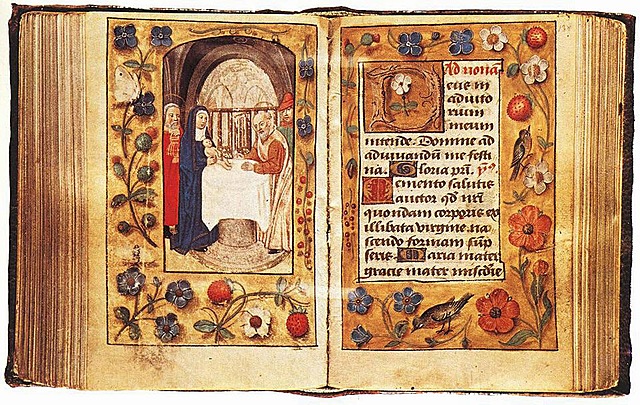 Ad nona
eus in
adiuto
rium
meum
intende. Domine ad
adiuuandū me festi
na. Gloria pr̄i. yͫꝰ.
Memento salutis
auctor qd nr̄i
quondam corporis ex
illibata virgine na
scendo formam sūp
seris. Maria mater
gracie mater miscd̄ie